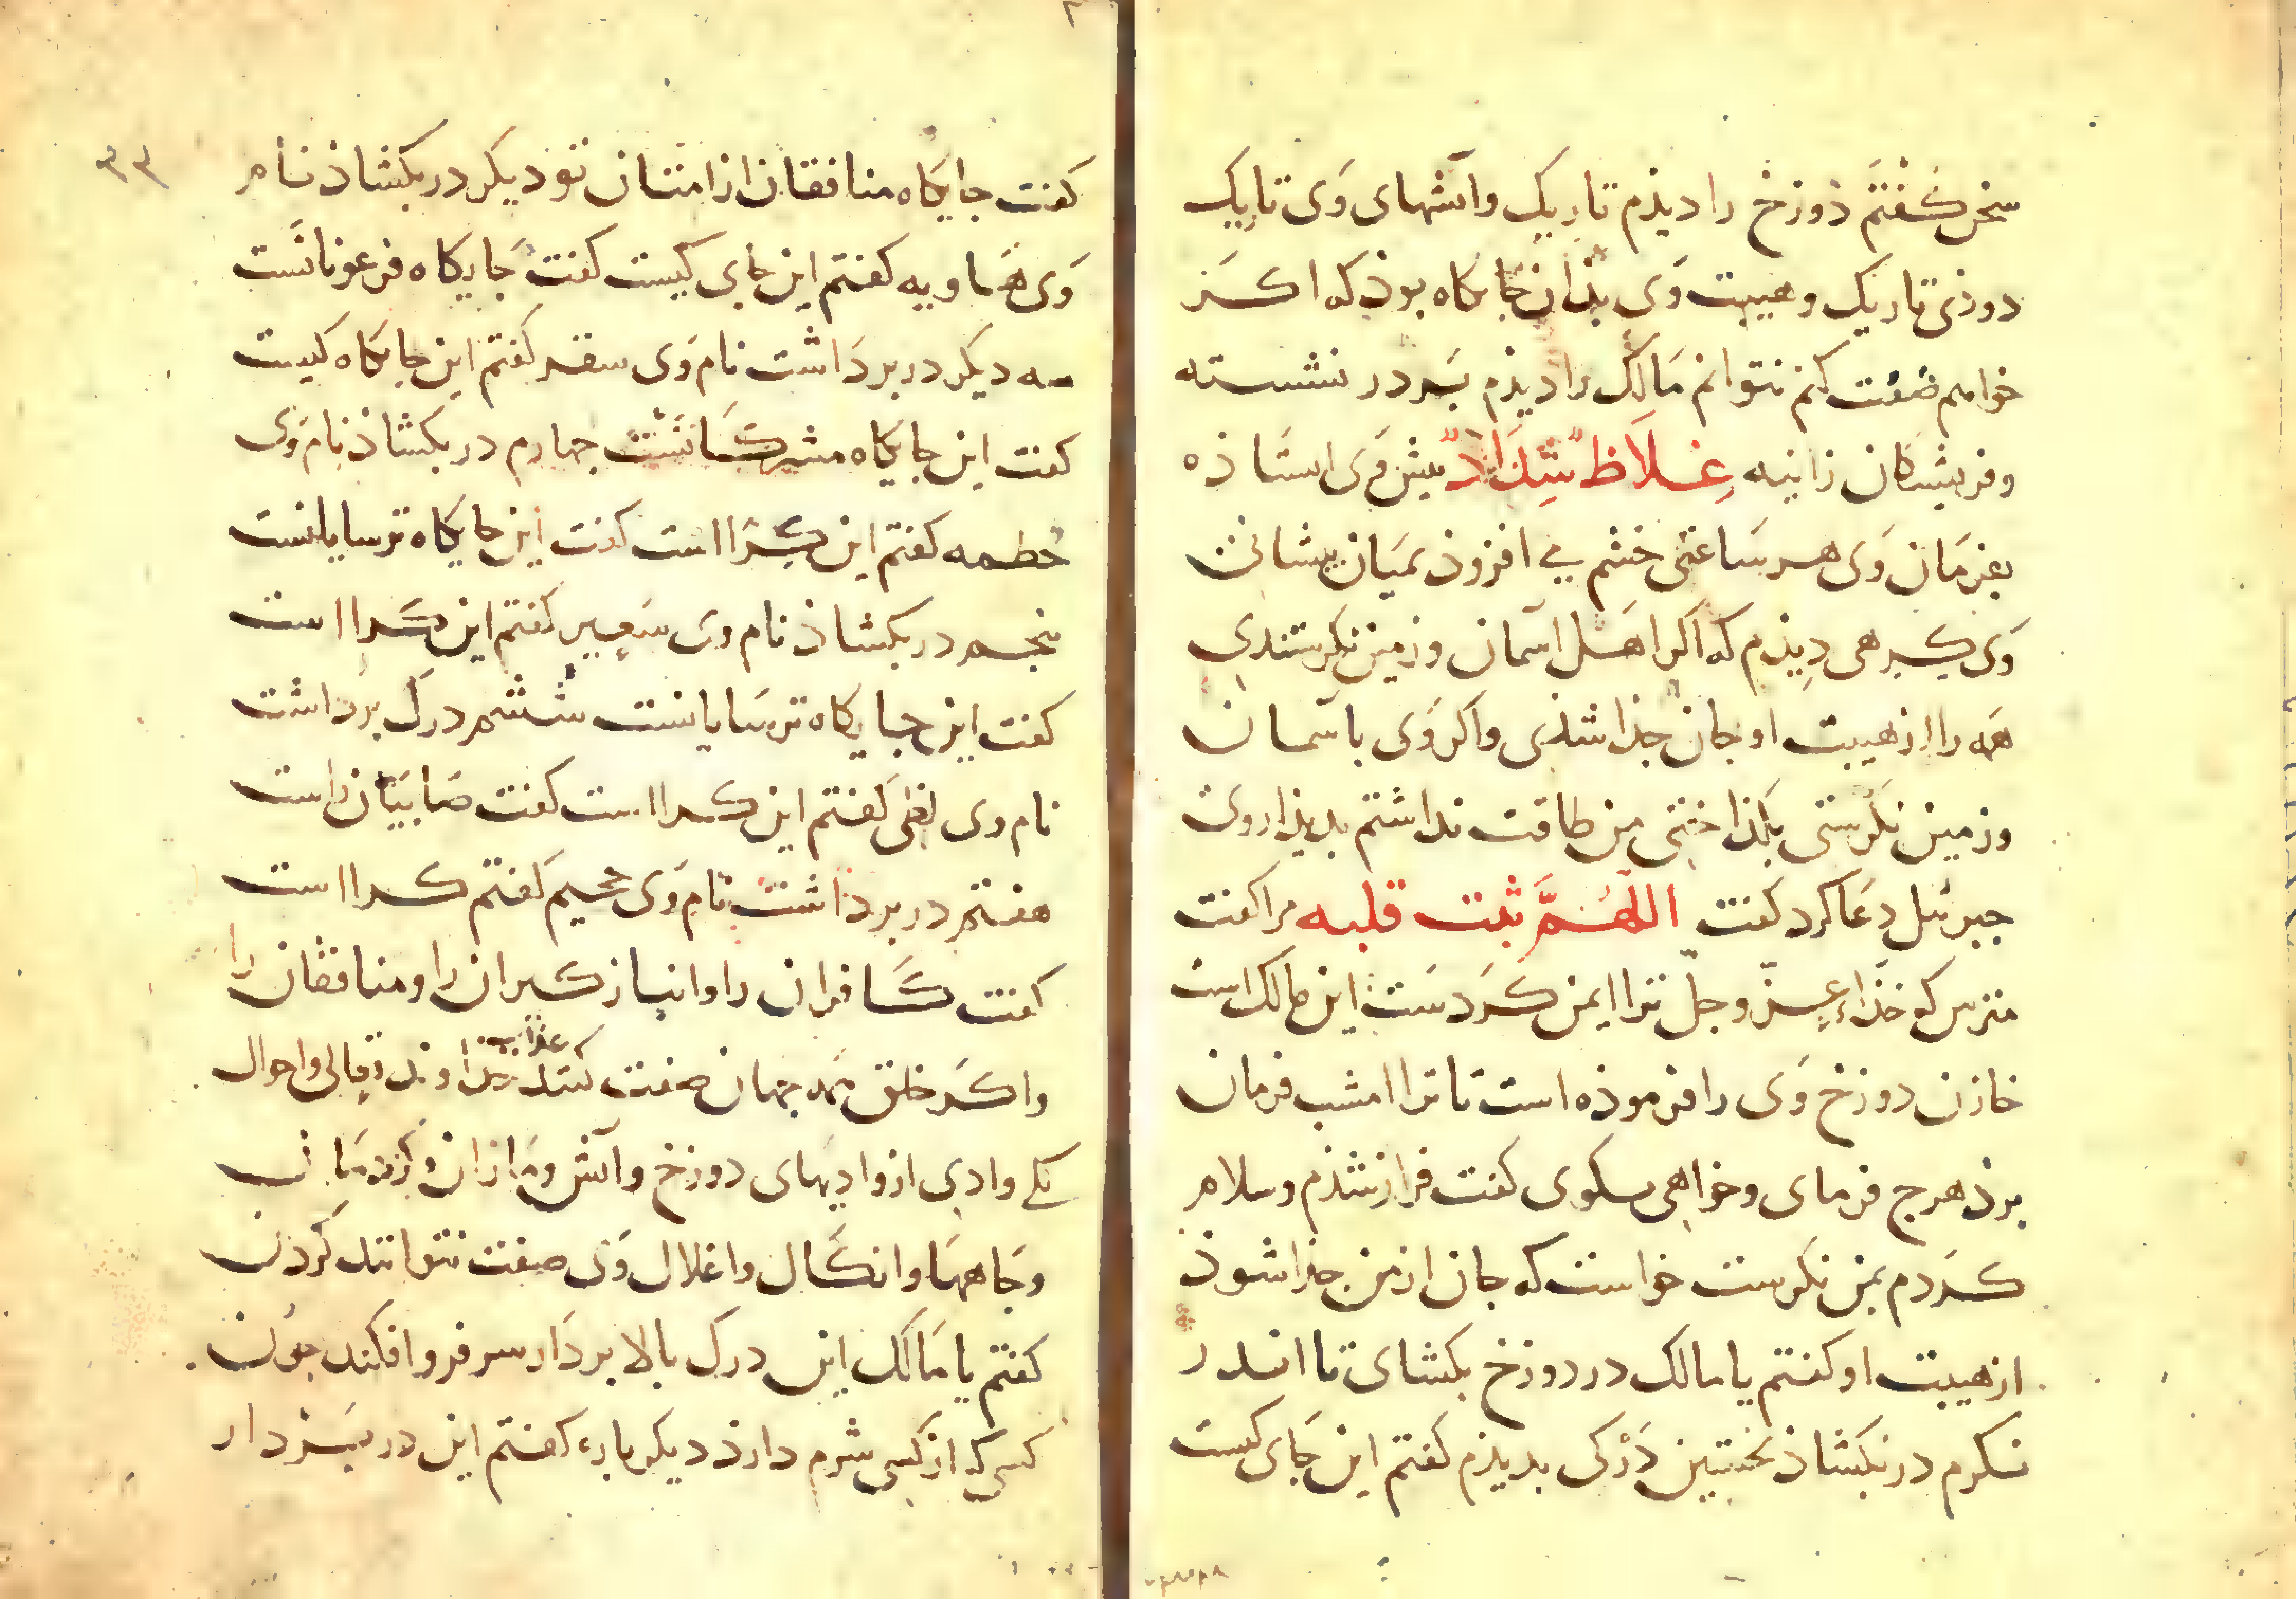 سخن گفتم دوزخ را دیذم تاریک و آتشهای وی تاریک
دوذی تاریک و هیبت وی بذان جایکاه بوذ که اکر
خواهم صفت کنم نتوانم مالک را دیذم بر در نشسته
و فریشتکان زبانیه غِلَاظٌ شِدَادٌ پیش وی استاذه
بفرمان وی هر ساعتی خشم می افزوذ بمیان پیشانی
وی کبرهی دیذم که اکر اهل آسمان و زمین نکرستندی
همه را از هیبت او جان جذا شذی و اکر وی باسمان
و زمین نکرستی بکذاختی من طاقت نداشتم بدیذار وی
جبرئیل دعا کرد کفت اللهم ثبت قلبه مرا کفت
مترس که خذاء عز و جل ترا ایمن کردست این مالک است
خازن دوزخ وی را فرموذه است تا ترا امشب فرمان
برذ هرج فرمای و خواهی بکوی کفت فراز شذم و سلام
کردم بمن نکرست خواست که جان از من جذا شوذ
از هیبت او کفتم یا مالک در دوزخ بکشای تا اندر
نکرم در بکشاذ نخستین درکی بدیذم کفتم این جای کیست
کفت جایکاه منافقان از امتان تو دیکر در بکشاذ نام
وی هاویه کفتم این جای کیست کفت جایکاه فرعونانست
سه دیکر در برداشت نام وی سقر کفتم این جایکاه کیست
کفت این جایکاه مشرکانست جهارم در بکشاذ نام وی
حطمه کفتم این کرا است کفت این جایکاه ترسایانست
پنجم در بکشاذ نام وی سعیر کفتم این کرا است
کفت این جایکاه ترسایانست ششم درک برداشت
نام وی لظی کفتم این کرا است کفت صابیان راست
هفتم در برداشت نام وی جحیم کفتم کرا است
کفت کافران را و انباز کیران را و منافقان را
و اکر خلق همه جهان صفت کنند عذاب خذاوند تعالی و احوال
یکی وادی از وادیهای دوزخ و آتش و ماران و کژدمان
و جاهها و انکال و اغلال وی صفت نتوانند کردن
کفتم یا مالک این درک بالا بردار سر فرو افکند جون
کسی که از کسی شرم دارذ دیکر باره کفتم این در بردار
۳۳